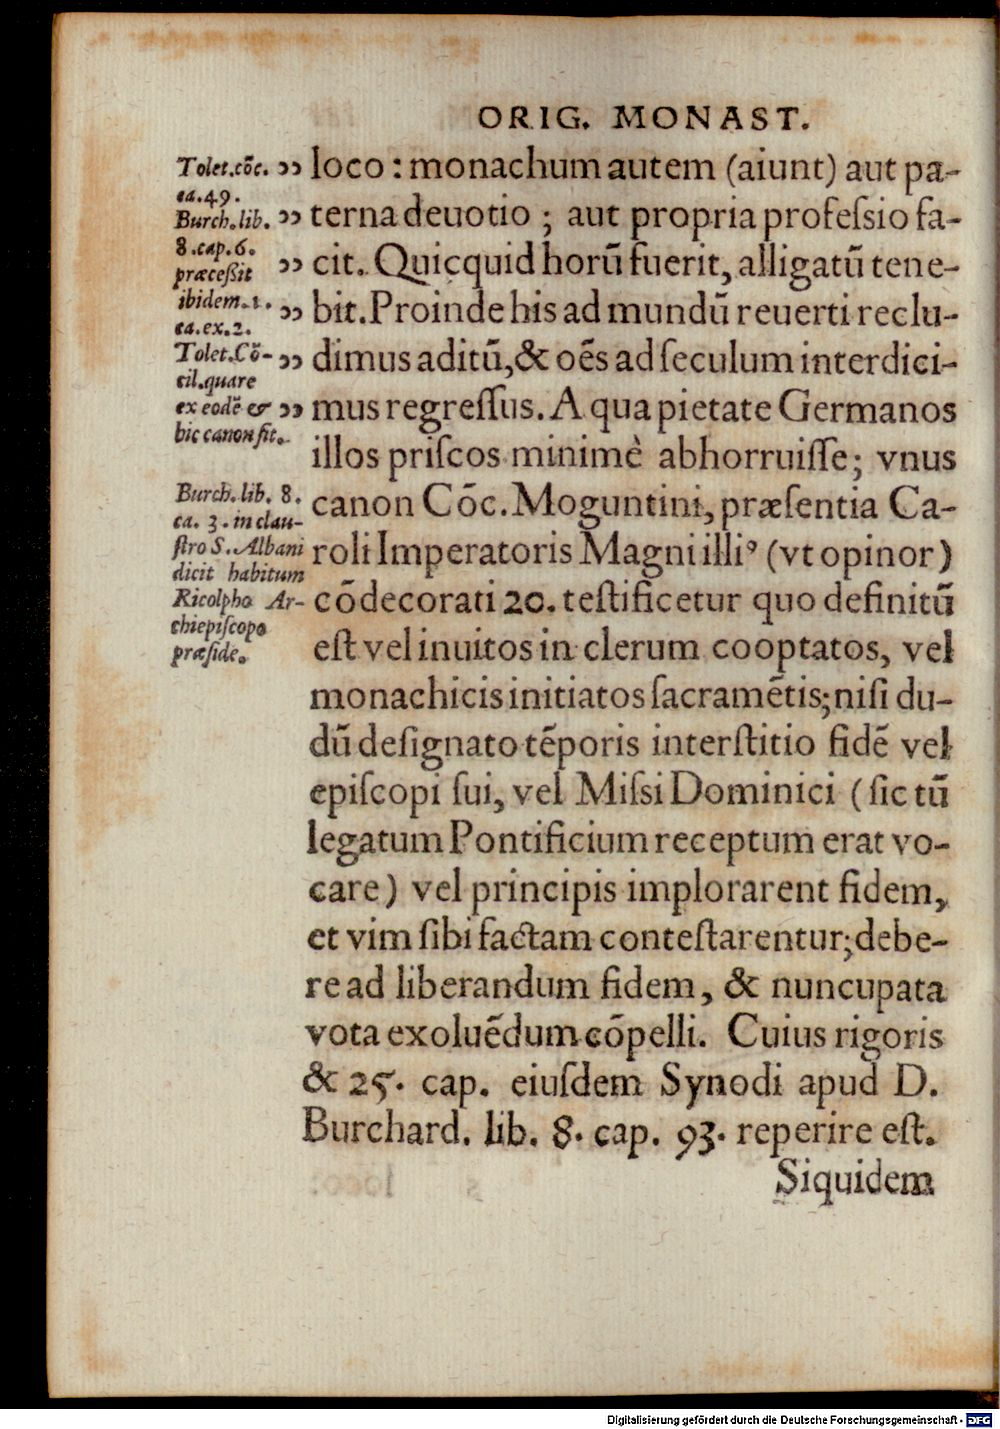 ORIG. MONAST.
Tolet.cõc.
ca.49.
Burch.lib.
8.cap.6.
præceßit
ibidem.1.
ca.ex.2.
Tolet.Cõ-
cil.quare
ex eodē &
hic canon fit.
Burch.lib. 8.
ca. 3. in clau-
ſtro S. Albani
dicit habitum
Ricolpho Ar-
chiepiſcopo
præſide.
„ loco : monachum autem (aiunt) aut pa-
„ terna deuotio ; aut propria profeſsio fa-
„ cit. Quicquid horũ fuerit, alligatũ tene-
„ bit. Proinde his ad mundũ reuerti reclu-
„ dimus aditũ, & oẽs ad ſeculum interdici-
„ mus regreſſus. A qua pietate Germanos
illos priſcos minimè abhorruiſſe; vnus
canon Cõc. Moguntini, præſentia Ca-
roli Imperatoris Magni illiꝰ (vt opinor)
cõdecorati 20. teſtificetur quo definitũ
eſt vel inuitos in clerum cooptatos, vel
monachicis initiatos ſacramẽtis; niſi du-
dũ deſignato tẽporis interſtitio fidẽ vel
epiſcopi ſui, vel Miſsi Dominici (ſic tũ
legatum Pontificium receptum erat vo-
care) vel principis implorarent fidem,
et vim ſibi factam conteſtarentur; debe-
re ad liberandum fidem, & nuncupata
vota exoluẽdum cõpelli. Cuius rigoris
& 25. cap. eiuſdem Synodi apud D.
Burchard. lib. 8. cap. 93. reperire eſt.
Siquidem
Digitalisierung gefördert durch die Deutsche Forschungsgemeinschaft - DFG